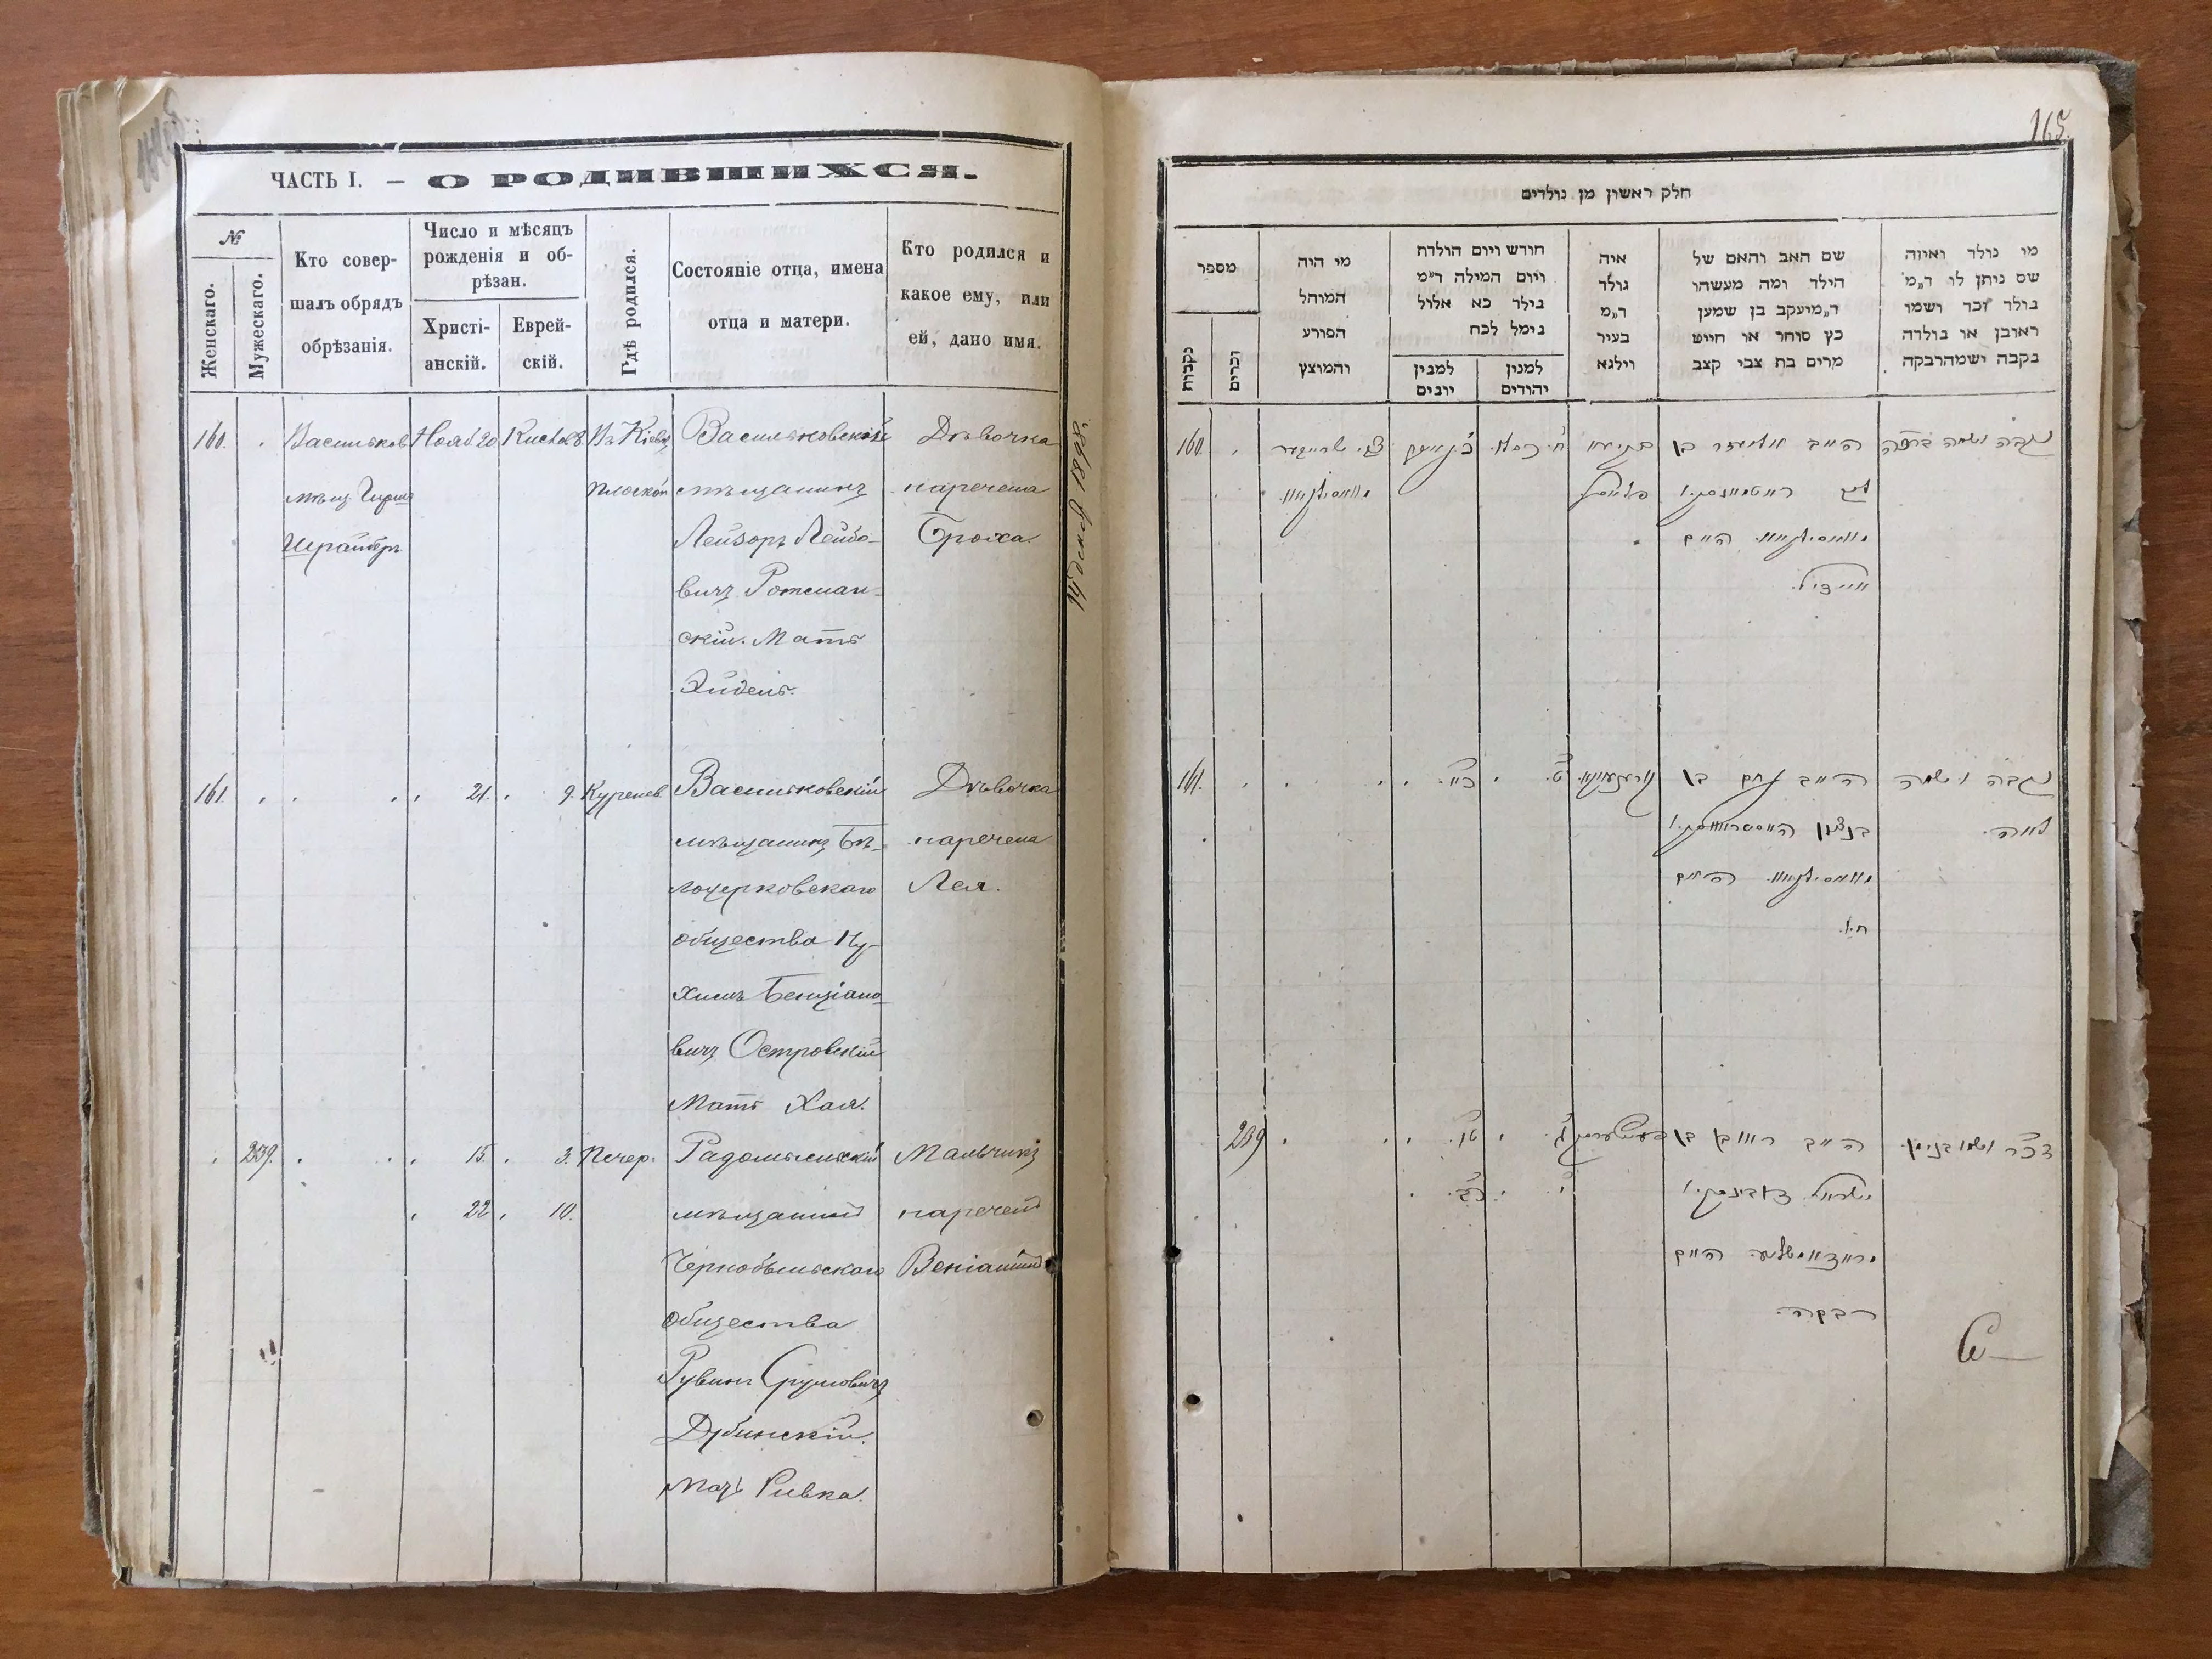 ЧАСТЬ I. — О РОДИВШИХСЯ.
№
Женскаго.
Мужескаго.
Кто совер-
шалъ обрядъ
обрѣзанія.
Число и мѣсяцъ
рожденія и об-
рѣзан.
Христі-
анскій.
Еврей-
скій.
Гдѣ родился.
Состояніе отца, имена
отца и матери.
Кто родился и
какое ему, или
ей, дано имя.
160.
Васильков
мѣщ. Гирш
Шрайберъ
Нояб 20
Кислов 8
Въ Кіевѣ
Плоской
Васильковскій
мѣщанинъ
Лейзоръ Лейбо-
вичъ Ротман-
скій. Мать
Эйдель.
Дѣвочка
наречена
Броха.
161.
21.
9.
Куренев.
Васильковскій
мѣщанинъ Бѣ-
лоцерковскаго
общества Ну-
химъ Бенціано-
вичъ Островскій
Мать Хая.
Дѣвочка
наречена
Лея.
239.
15.
3.
Печер.
22
10.
Радомысльскій
мѣщанинъ
Чернобыльскаго
общества
Рувинъ Сруловичъ
Дубинскій.
Мать Ривка.
Мальчикъ
нареченъ
Веніаминъ
165.
חלק ראשון מן נולדים
מספר
נקבות
זכרים
מי היה
המוהל
הפורע
והמוצץ
חודש ויום הולדת
ויום המילה ד״מ
נילד כא אלול
נימל לכח
למנין
יונים
למנין
יהודים
איה
נולד
ד״מ
בעיר
ווילנא
שם האב והאם של
הילד ומה מעשהו
ד״מ יעקב בן שמען
כץ סוחר או חייט
מרים בת צבי קצב
מי נולד ואיזה
שם ניתן לו ד״מ
נולד זכר ושמו
ראובן או נולדה
נקבה ושמה רבקה
160.
צבי שרייבער
וואסילקאוו
כ׳ נאיעמ
ח׳ כסלו
האב אליעזר בן
וואסילקאוו האם
איידיל
נקבה ושמה ברכה
161.
ט׳
האב נחם בן
בנציון
וואסילקאוו האם
חי׳
נקבה ושמה
לאה
239
ט״ו
ג׳
כ״ב
י׳
האב ראובן בן
ישראל דובינסקי
האם
רבקה
זכר ושמו בנימין